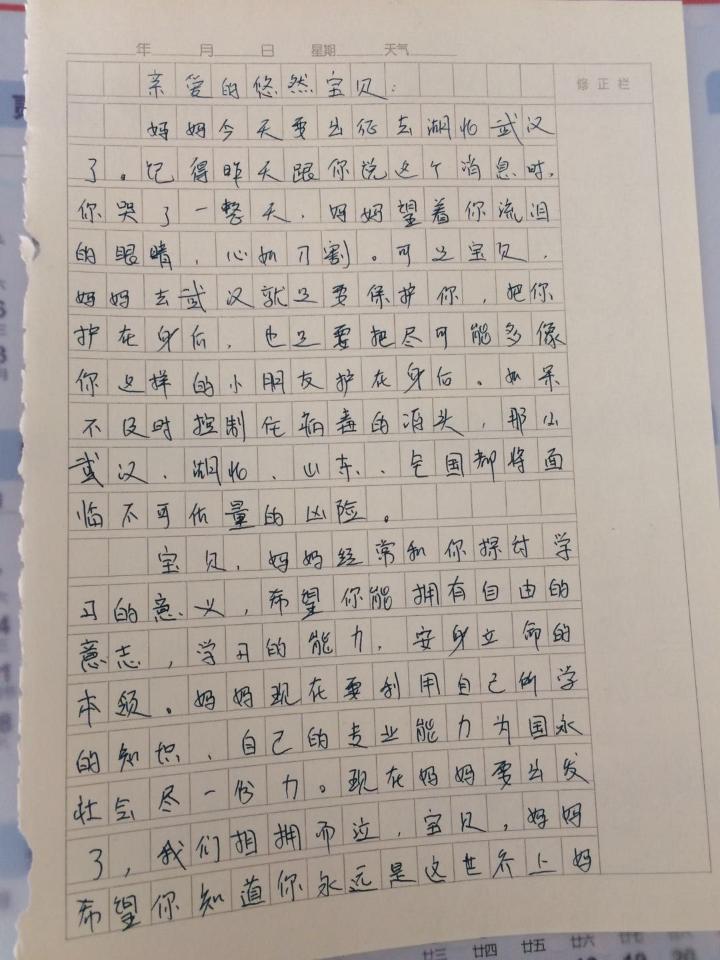 年 月 日 星期 天气
修正栏
亲爱的悠然宝贝：
妈妈今天要出征去湖北武汉
了。记得昨天跟你说这个消息时，
你哭了一整天，妈妈望着你流泪
的眼睛，心如刀割。可是宝贝，
妈妈去武汉就是要保护你，把你
护在身后，也是要把尽可能多像
你这样的小朋友护在身后。如果
不及时控制住病毒的源头，那么
武汉、湖北、山东、全国都将面
临不可估量的凶险。
宝贝，妈妈经常和你探讨学
习的意义，希望你能拥有自由的
意志，学习的能力，安身立命的
本领。妈妈现在要利用自己所学
的知识、自己的专业能力为国家
社会尽一份力。现在妈妈要出发
了，我们相拥而泣，宝贝，妈妈
希望你知道你永远是这世界上妈
廿三 廿四 廿五 廿六 廿七 廿八